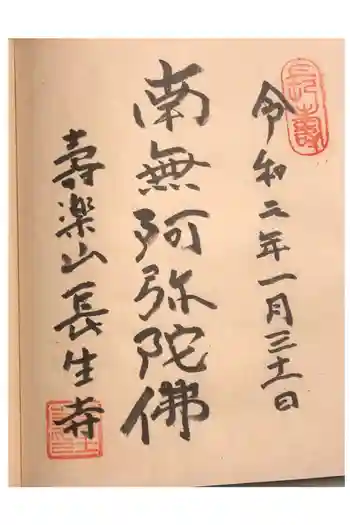 令和二年一月三十一日
南無阿弥陀佛
壽楽山長生寺
長壽